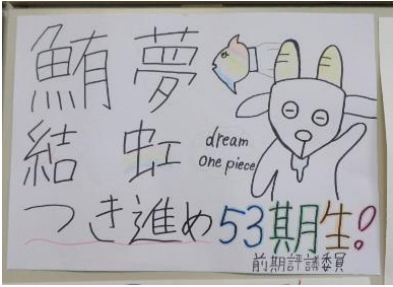 鮪夢
結虹
dream
one piece
つき進め53期生!
前期評議委員